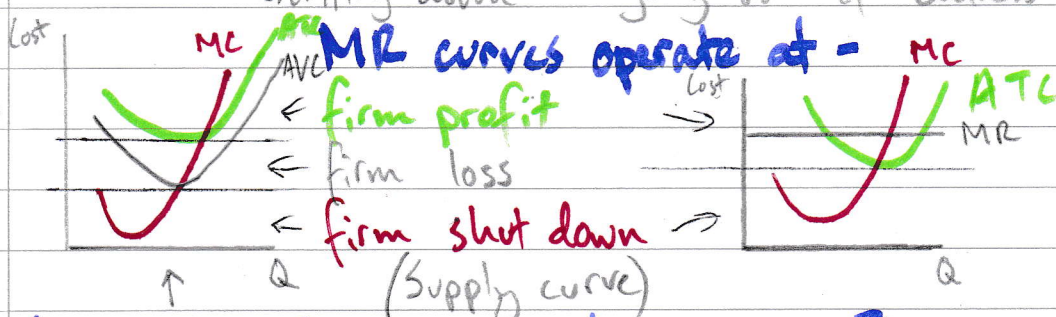 Cost
MC
ATC
AVC
MR curves operate at -
firm profit
firm loss
firm shut down
(Supply curve)
Q
Cost
MC
ATC
MR
Q